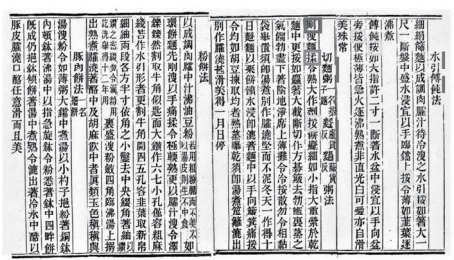 水引餺飥法
細絹篩麵以成調肉臛汁待冷溲之水引挼如箸大一
尺一斷盤中盛水浸宜以手臨鐺上挼令薄如韭葉逐
沸煮
餺飥挼如大指許二寸一斷著水盆中浸宜以手向盆
旁挼使極薄皆急火逐沸熟煮非直光白可愛亦自滑
美殊常
切麵粥 粥法
剛溲麵揉令熟大作劑挼餅麤細如小指大重縈於乾
麵中更挼如麤箸大截斷切作方碁簸去勃甑裏蒸之
氣餾勃盡下著陰地淨席上薄攤令冷挼散勿令相黏
袋盛舉置須即湯煮別作臛澆堅而不泥冬天一作得十
日 以粟飯饙水浸即漉著麵中以手向簸箕痛挼
令均如胡豆揀取均者熟蒸曝乾須即湯煮笊籬漉出
別作臛澆甚滑美得一月日停
粉餅法
以成調肉臛汁接沸溲英粉若用粗粉脆而不美不以湯溲則生不中食如
環餅麵先剛溲以手痛揉令極軟熟更以臛汁溲令極澤
鑠鑠然割取牛角似匙面大鑽作六七小孔僅容粗麻
線若作水引形者更割牛角開四五孔僅容韭葉取新帛
細紬兩段各方尺半依角大小鑿去中央綴角著紬以鑽
鑽之密綴勿令漏粉用訖洗舉得二十年用裹盛溲粉斂四角臨沸湯上搦
出熟煮臛澆若著酪中及胡麻飲中者真類玉色稹稹與
豚肉餅法一名撥餅
湯溲粉令如薄粥大鐺中煮湯以小杓子挹粉著銅鉢
內頓鉢著沸湯中以指急旋鉢令粉悉著鉢中四畔餅
既成仍挹鉢傾餅著湯中煮熟令漉出著冷水中酷似
豚皮臛澆麻酪任意滑而且美